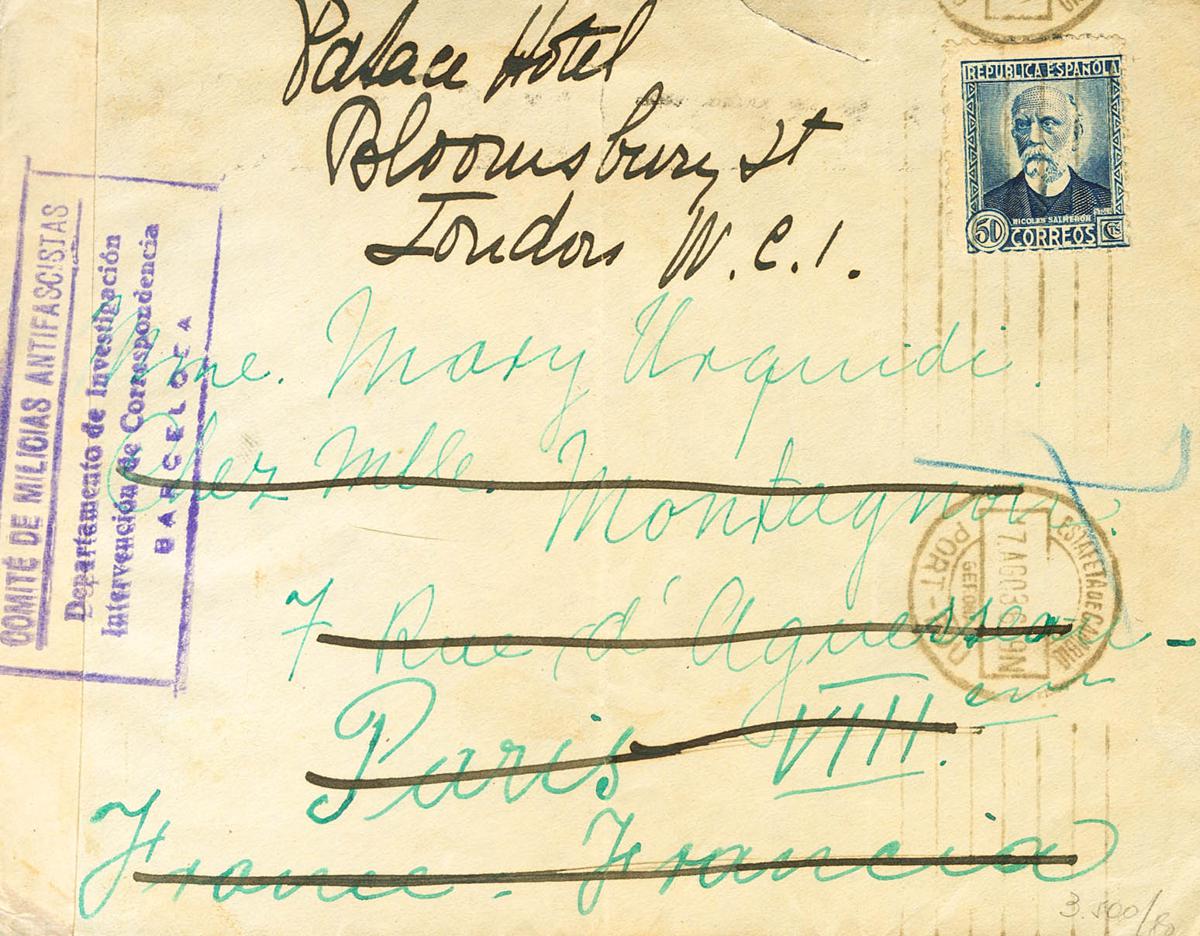 Palace Hotel
Bloomsbury St
London W.C.1.
REPUBLICA ESPAÑOLA
NICOLAS SALMERON
50 CORREOS CTS
Mme. Mary Urquidi.
Chez Mlle. Montagnon.
7 Rue d'Aguesseau-
Paris VIII em.
France - Francia
COMITÉ DE MILICIAS ANTIFASCISTAS
Departamento de Investigación
Intervención de Correspondencia
BARCELOCA
ESTAFETA DE CAMBIO
7 AGO 36 9N
PORT-BOU
3.500/